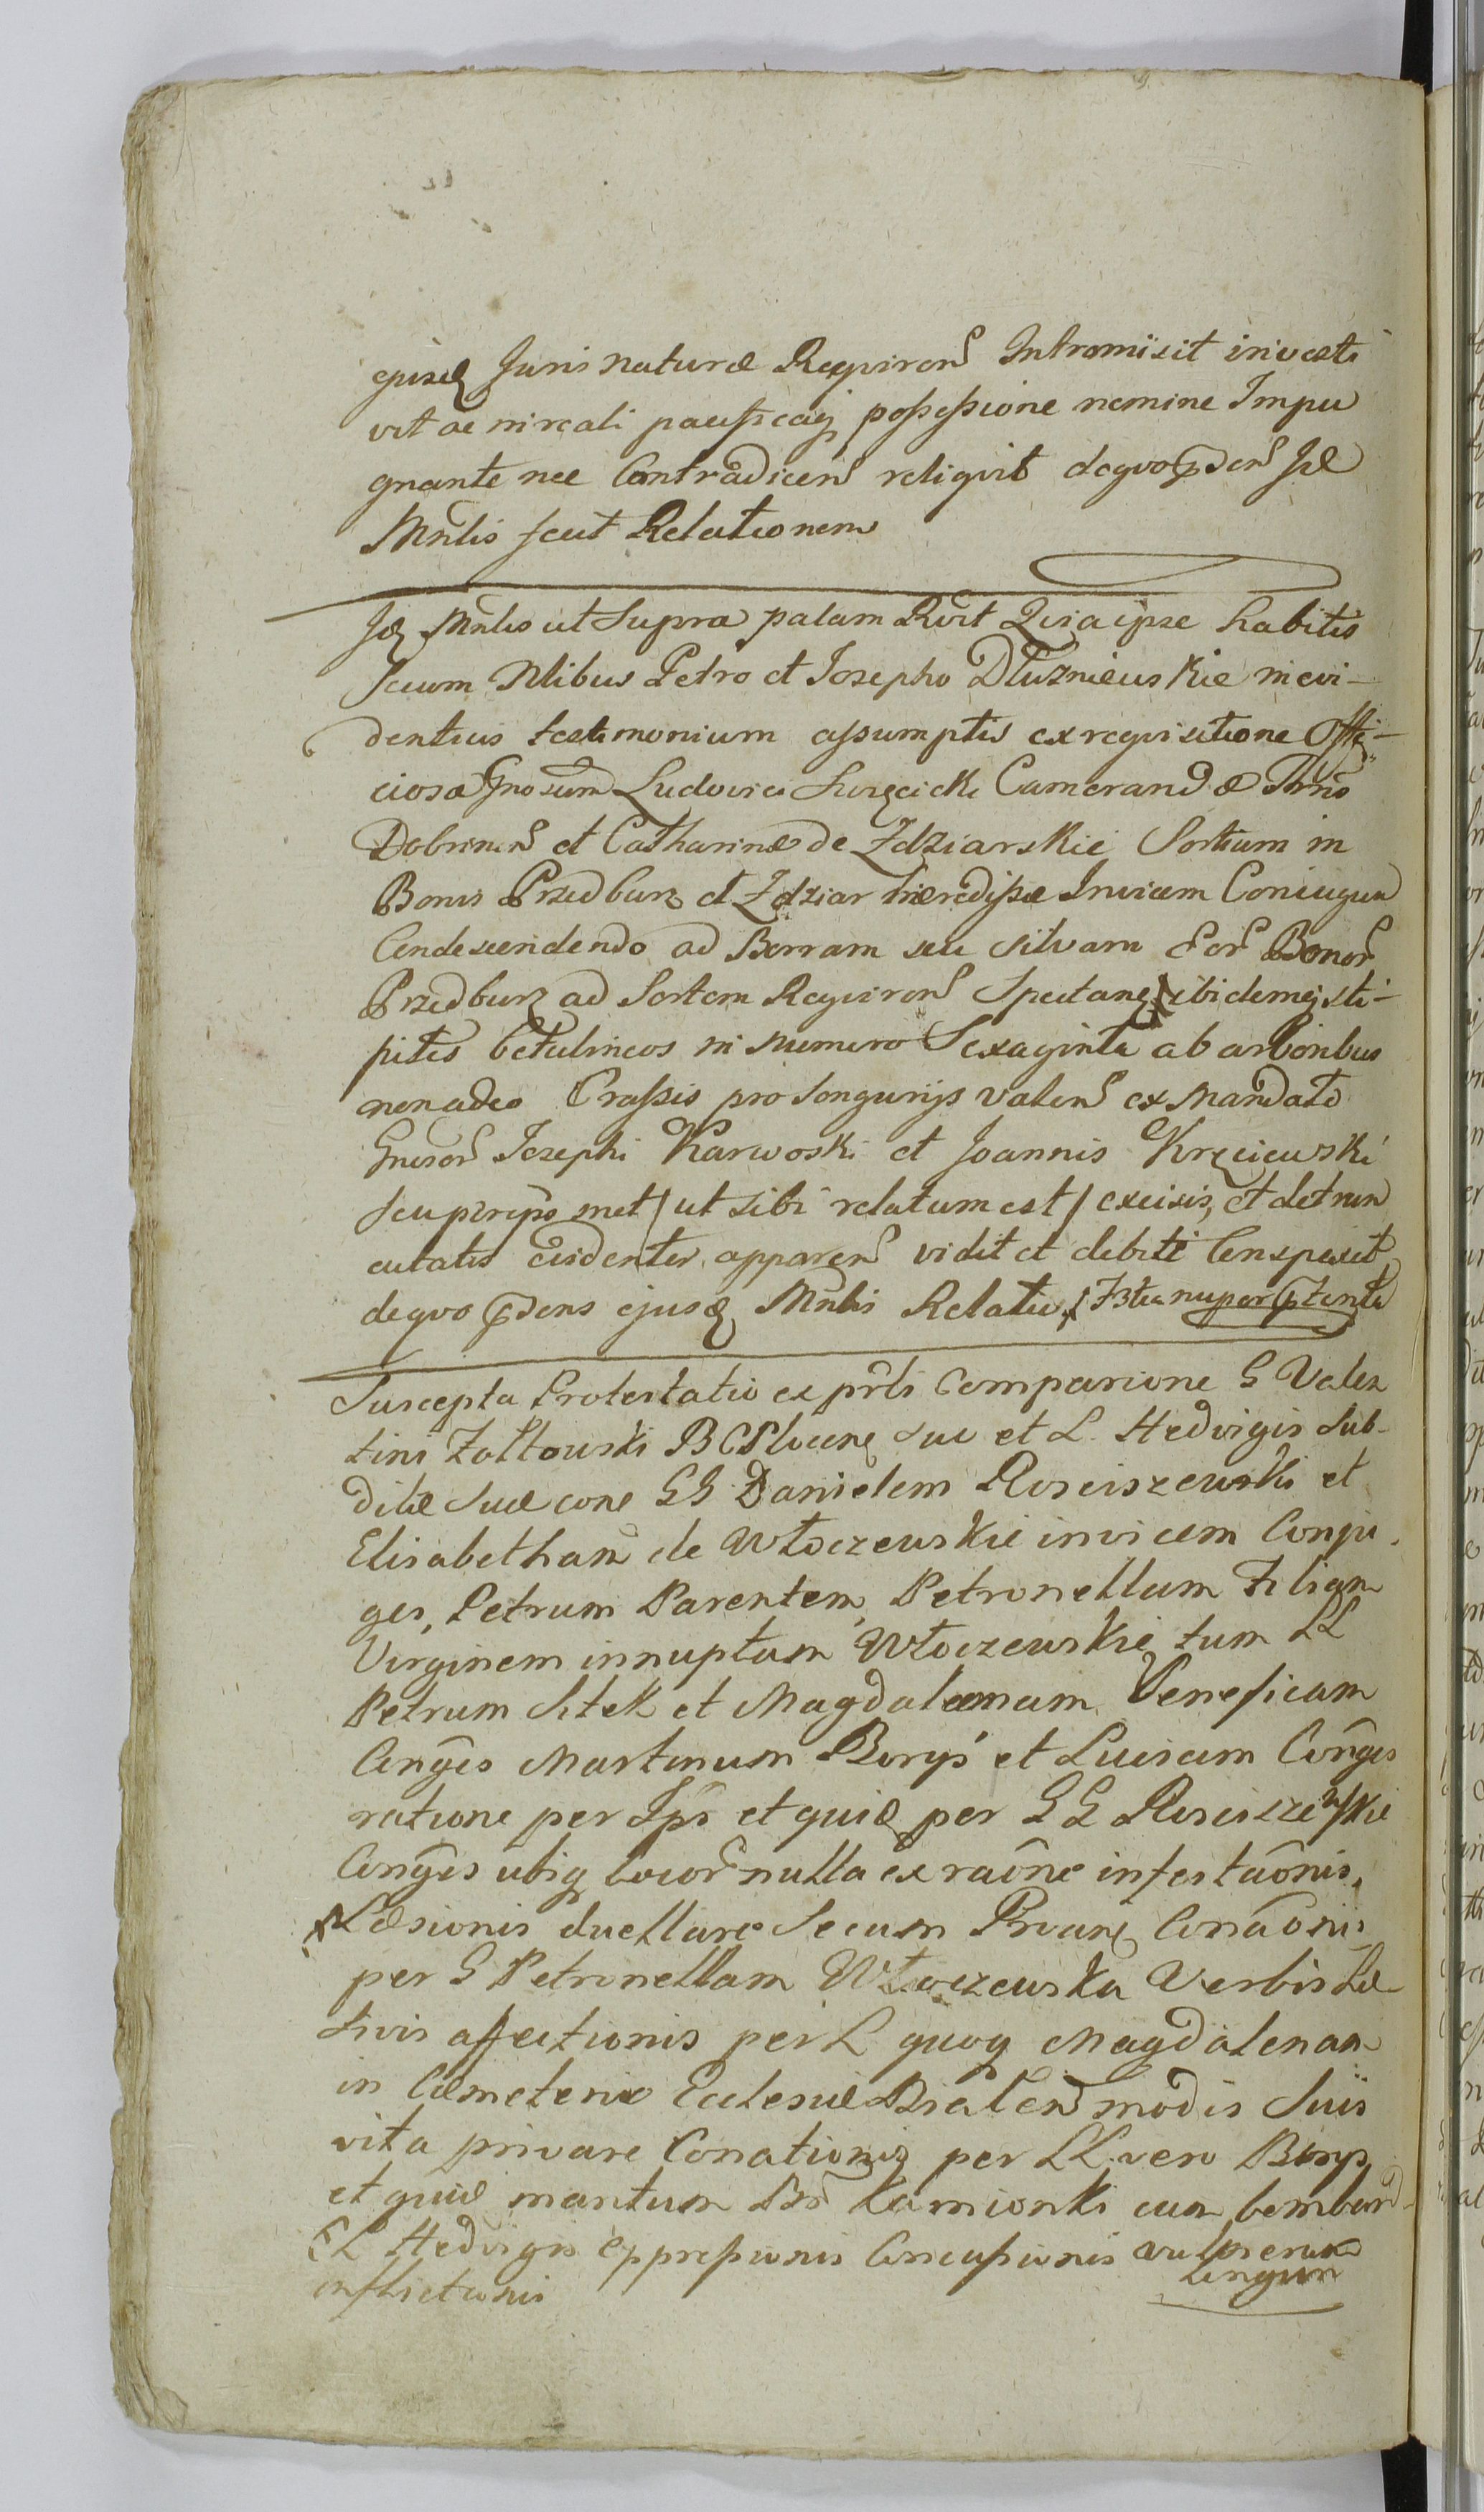 ejusd Juris naturæ Requiren Intromisit investi
vit ac in reali pacificaq possessione nemine Impu
gnante nec Contradicen reliquit dequo pden Id
Mnlis fecit Relationem
Id Mnlis ut Supra palam Rvit Quia ipse habitis
secum Nlibus Petro et Josepho Dłuzniewskie in evi-
dentius testimonium assumptis ex requisitione Offi-
ciosa Gnosum Ludovici Swięcicki Camerand æ Thrno
Dobrinen et Catharinæ de Zdziarskie Sortium in
Bonis Przedburz et Zdziar hæredissæ Invicem Coniugum
Condescendendo ad Borram seu silvam Eor Bonor
Przedburz ad Sortem Requiren Spectanq ibidemq sti-
pites betulineos in numero Sexaginta ab arboribus
non adeo Crassis pro longurijs valen ex Mandato
Gnosor Josephi Karwoski et Joannis Kręciewski
seu per ipso met / ut sibi relatum est / excisis, et detrun
catatis evidenter apparen vidit et debite Conspexit
de quo pdens ejusd Mnlis Relatio nuper
Suscepta Protestatio ex prli Comparione G Valen
tini Zołtowski B C Plocene suo et L Hedvigis Sub-
ditæ suæ cone GG Danielem Rosciszewski et
Elisabetham de Włoczewskie invicem Conju
ges, Petrum Parentem, Petronellam Filiam
Virginem innuptam Włoczewskie tum LL
Petrum Sitek et Magdalenam Veneficam
Conges Martinum Borys et Luciam Conges
ratione per Ips et quid per GG Rosciszewskie
Conges ubiq locor nulla ex raone infestaonis,
Læsionis duellare secum Provane Conaonis
per G Petronellam Włoczewska Verbis Læ
sivis affectionis per L quoq Magdalenam
in Cæmeterio Ecclesiæ Bialen modis suis
vita privare Conationis per LL vero Borys
et quid maritum Br Kamionki cum bombard
E L Hedvigis oppressionis Concussionis vulnerum
inflictionis Longum